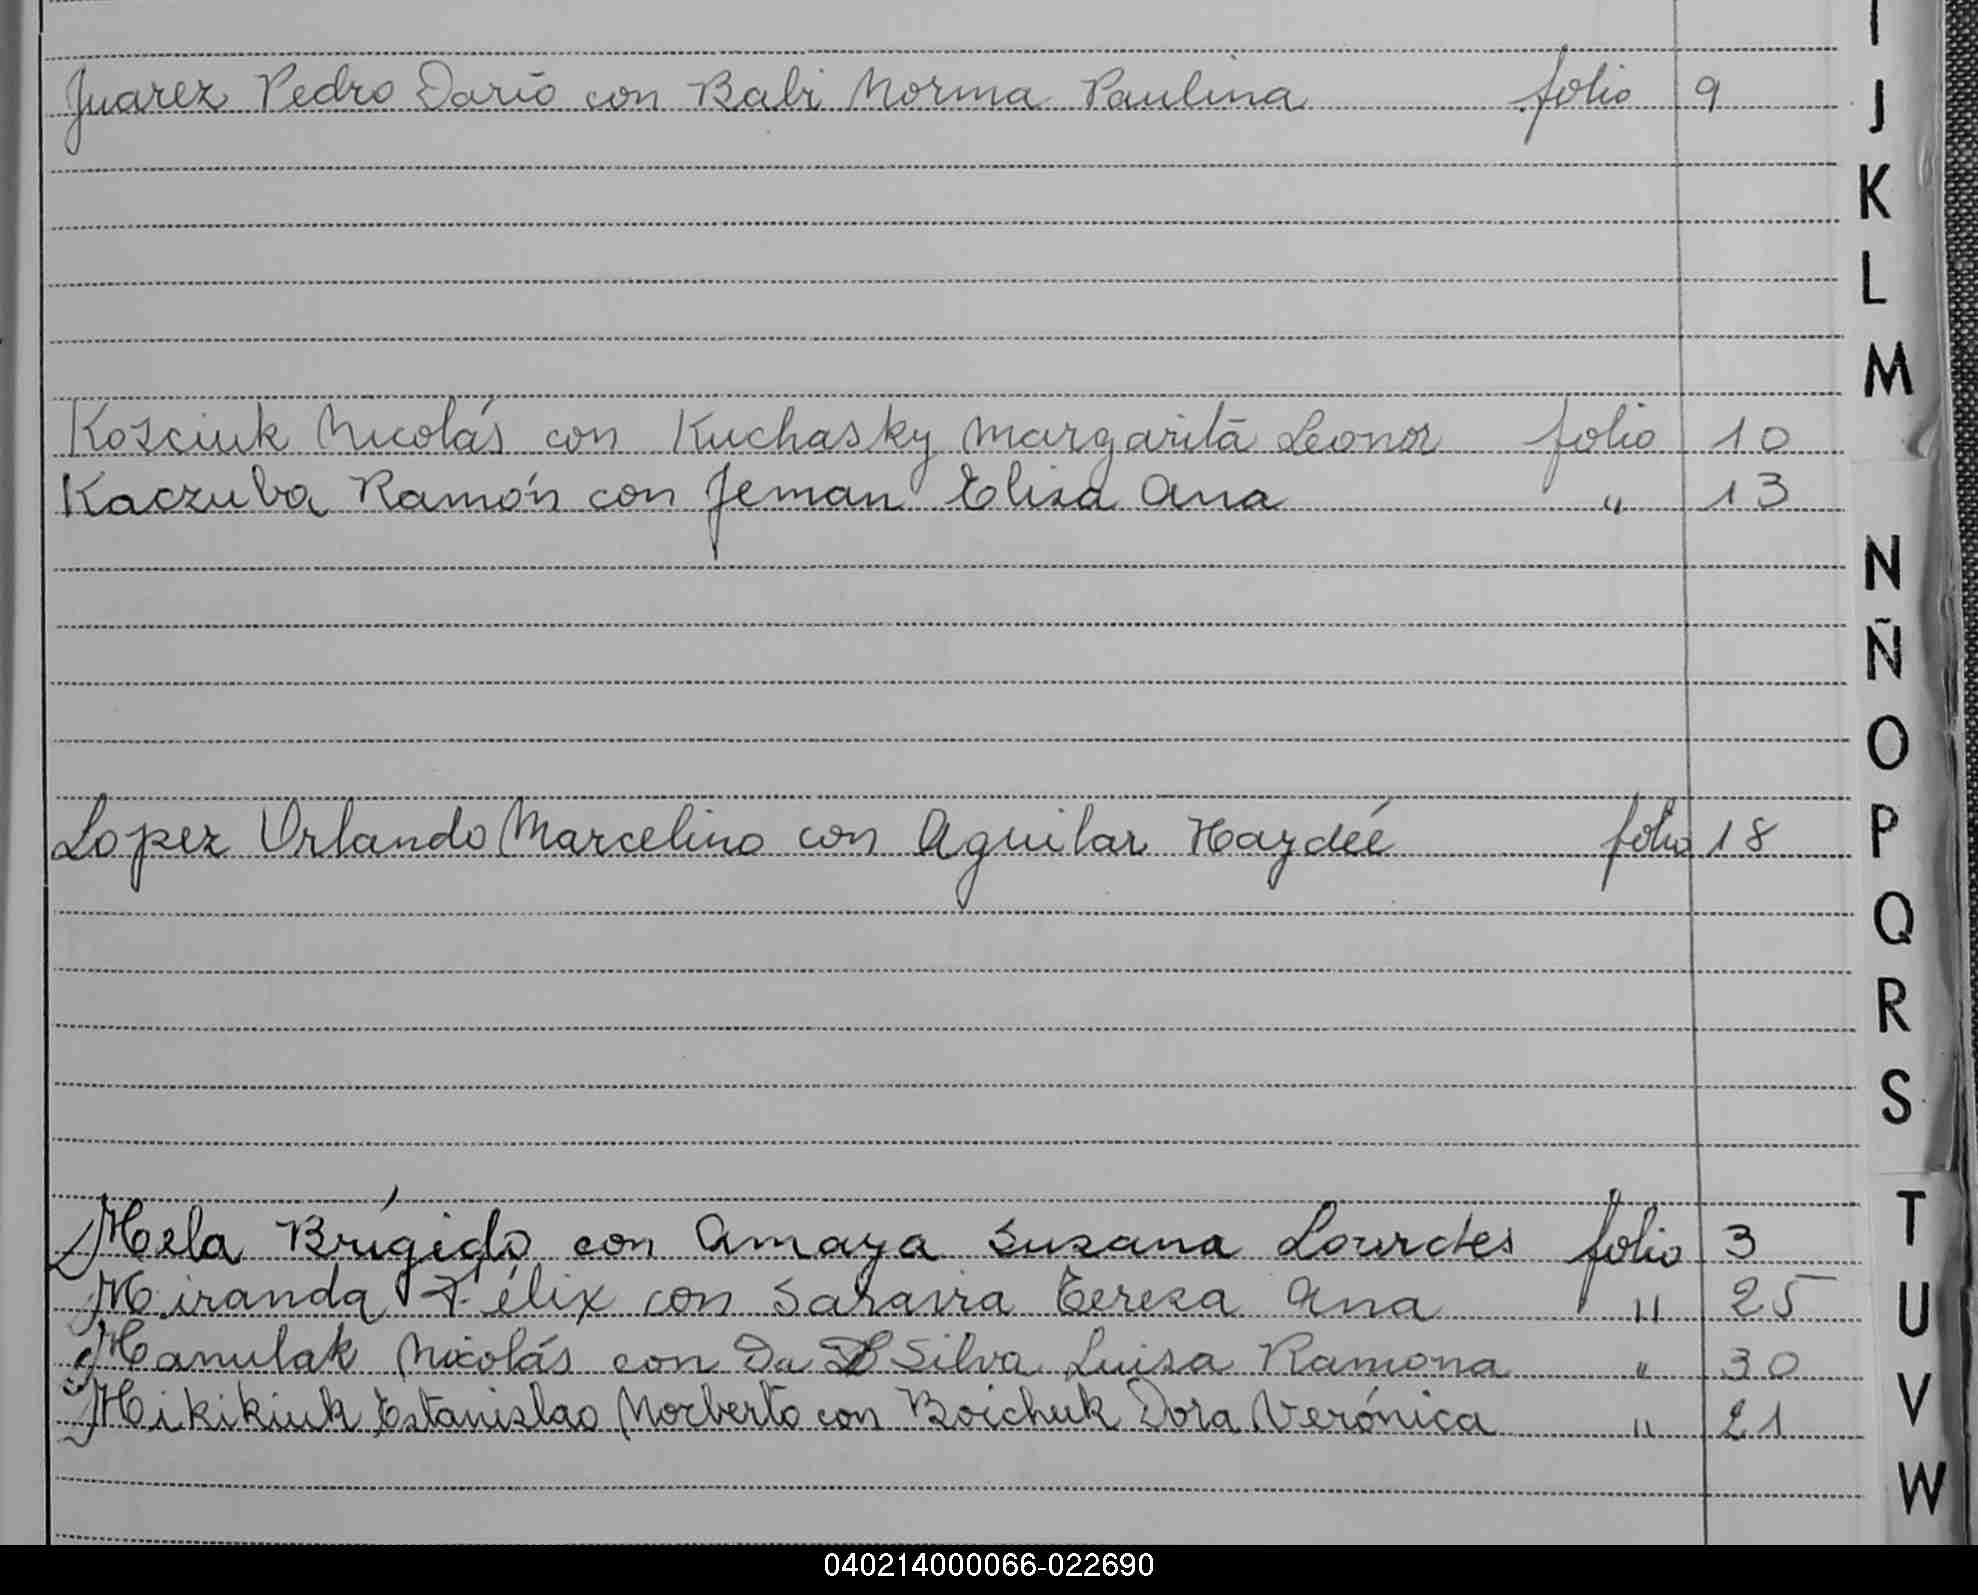 I
Juarez Pedro Darío con Babi Norma Paulina folio 9
J
K
L
M
Kosciuk Nicolás con Kuchasky Margarita Leonor folio 10
Kaczuba Ramón con Jeman Elisa Ana " 13
N
Ñ
O
Lopez Orlando Marcelino con Aguilar Haydeé folio 18
P
Q
R
S
Mela Brígido con Amaya Susana Lourdes folio 3
T
Miranda Félix con Saraira Teresa Ana " 25
U
Manulak Nicolás con Da Silva Luisa Ramona " 30
Mikikiuk Estanislao Norberto con Boichuk Dora Verónica " 21
V
W
040214000066-022690